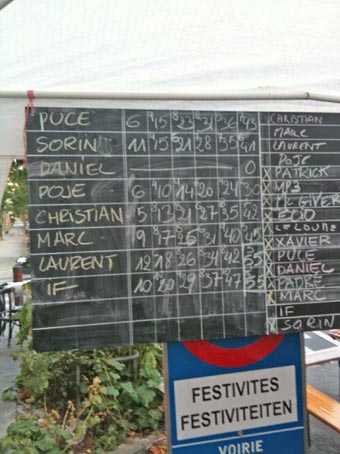 PUCE 6 15 23 31 36 45
SORIN 11 15 21 28 35 41
DANIEL 0
POJE 6 10 14 20 24 30
CHRISTIAN 5 13 21 27 35 42
MARC 9 17 25 31 40 45
LAURENT 12 18 26 34 42
IF 10 20 29 37 47 55
CHRISTIAN
MARC
LAURENT
POJE
X PATRICK
X
X
X
X
X XAVIER
X PUCE
X DANIEL
X PADRE
X MARC
IF
X SORIN
FESTIVITES
FESTIVITEITEN
VOIRIE